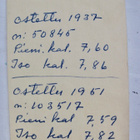 Ostettu 1937
n: 50845
Pieni kal. 7,60
Iso kal. 7,86
Ostettu 1951
n: 103517
Pieni kal. 7,59
Iso kal. 7,82